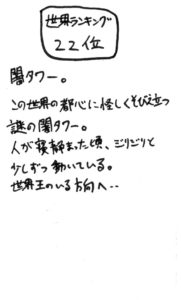 世界ランキング
22位
闇タワー。
この世界の都心に怪しくそびえ立つ
謎の闇タワー。
人が寝静まった頃、ジリジリと
少しずつ動いている。
世界王のいる方向へ・・